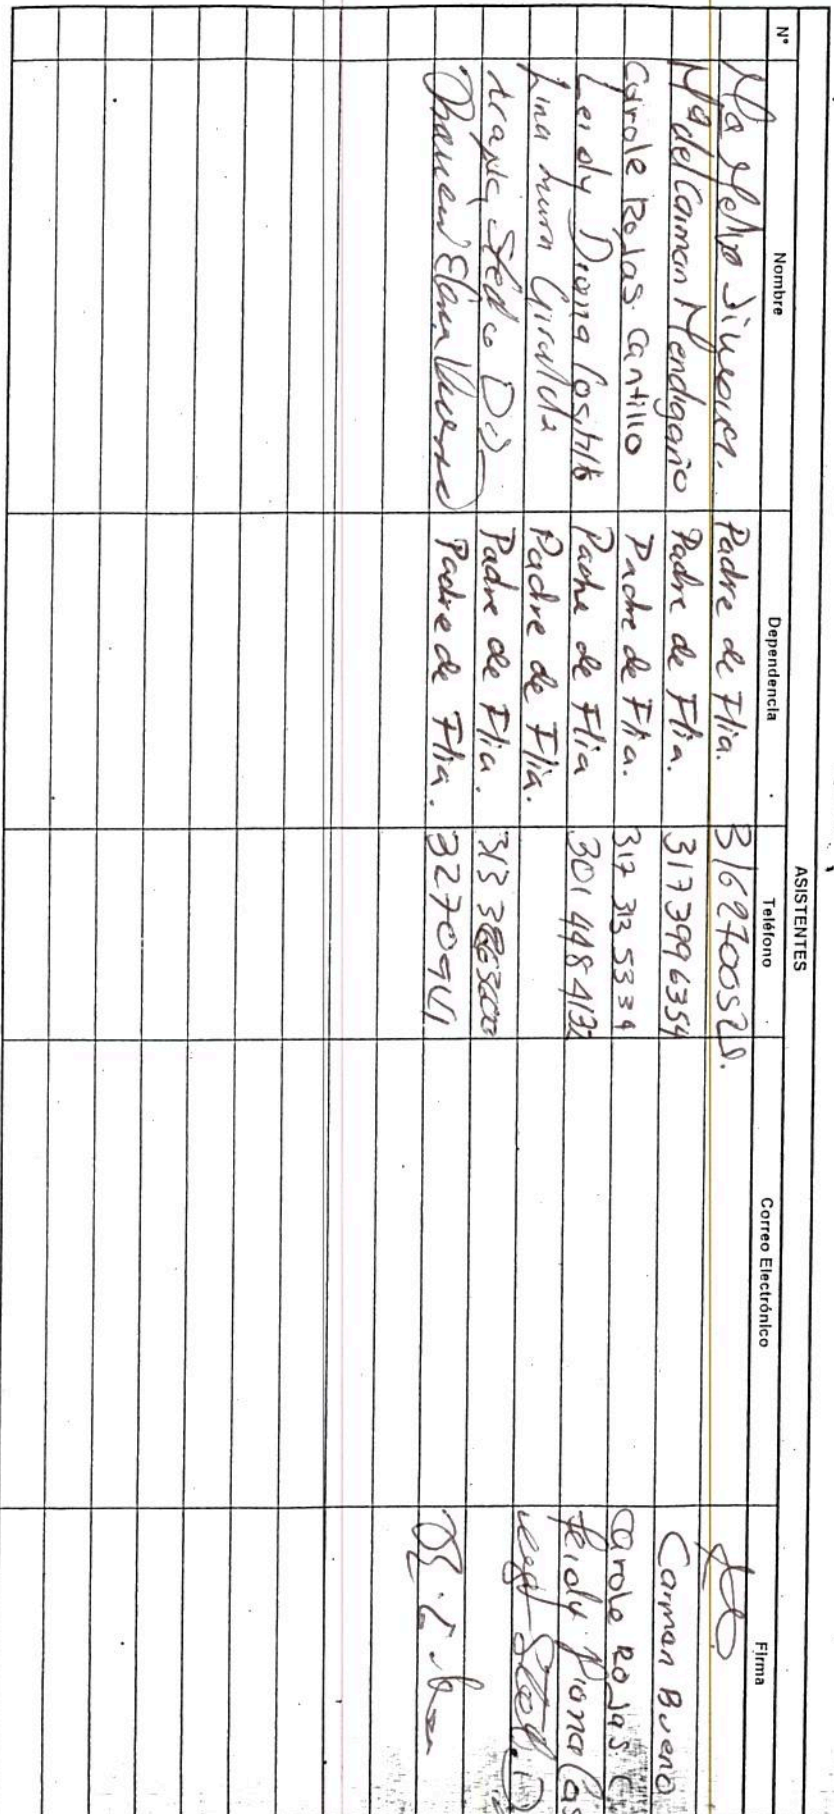 ASISTENTES
N° Nombre Dependencia Teléfono Correo Electrónico Firma
Padre de Flia. 3162700528.
Mª del Carman Mendigaño Padre de Flia. 3173996354 Carman Bueno
Carole Rojas Cantillo Padre de Flia. 317 313 5334 Carole Rojas C
Leidy Diana Padre de Flia 301 448 4132 Leidy Diana Cas
Lina Giralda Padre de Flia.
Padre de Flia. 313
Elena Padre de Flia. 3270941